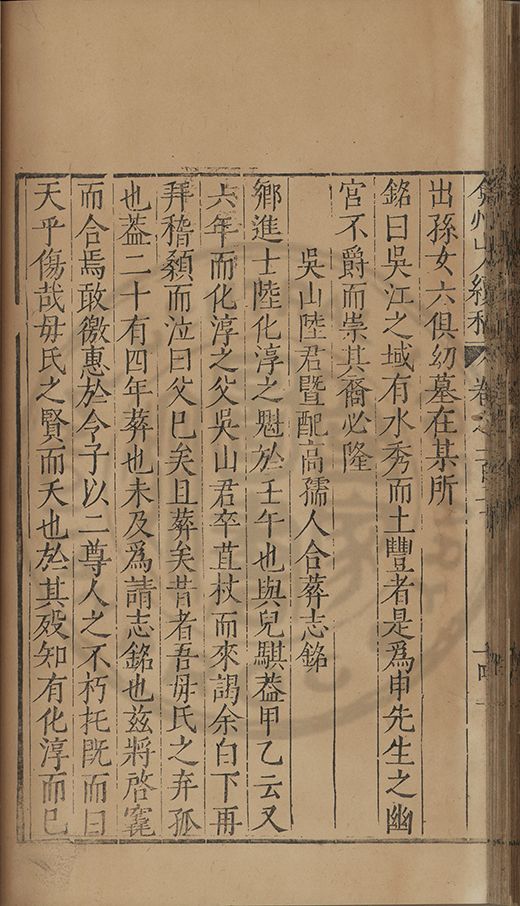 弇州山人續稿 卷之一百
出孫女六俱幼墓在某所
銘曰吳江之域有水秀而土豐者是爲申先生之幽
宮不爵而崇其裔必隆
吳山陸君暨配高孺人合葬志銘
鄉進士陸化淳之魁於壬午也與兒騏葢甲乙云又
六年而化淳之父吳山君卒苴杖而來謁余白下再
拜稽顙而泣曰父已矣且葬矣昔者吾母氏之弃孤
也葢二十有四年葬也未及爲請志銘也茲將啓窆
而合焉敢徼惠於令子以二尊人之不朽托旣而曰
天乎傷哉母氏之賢而夭也於其歿知有化淳而已